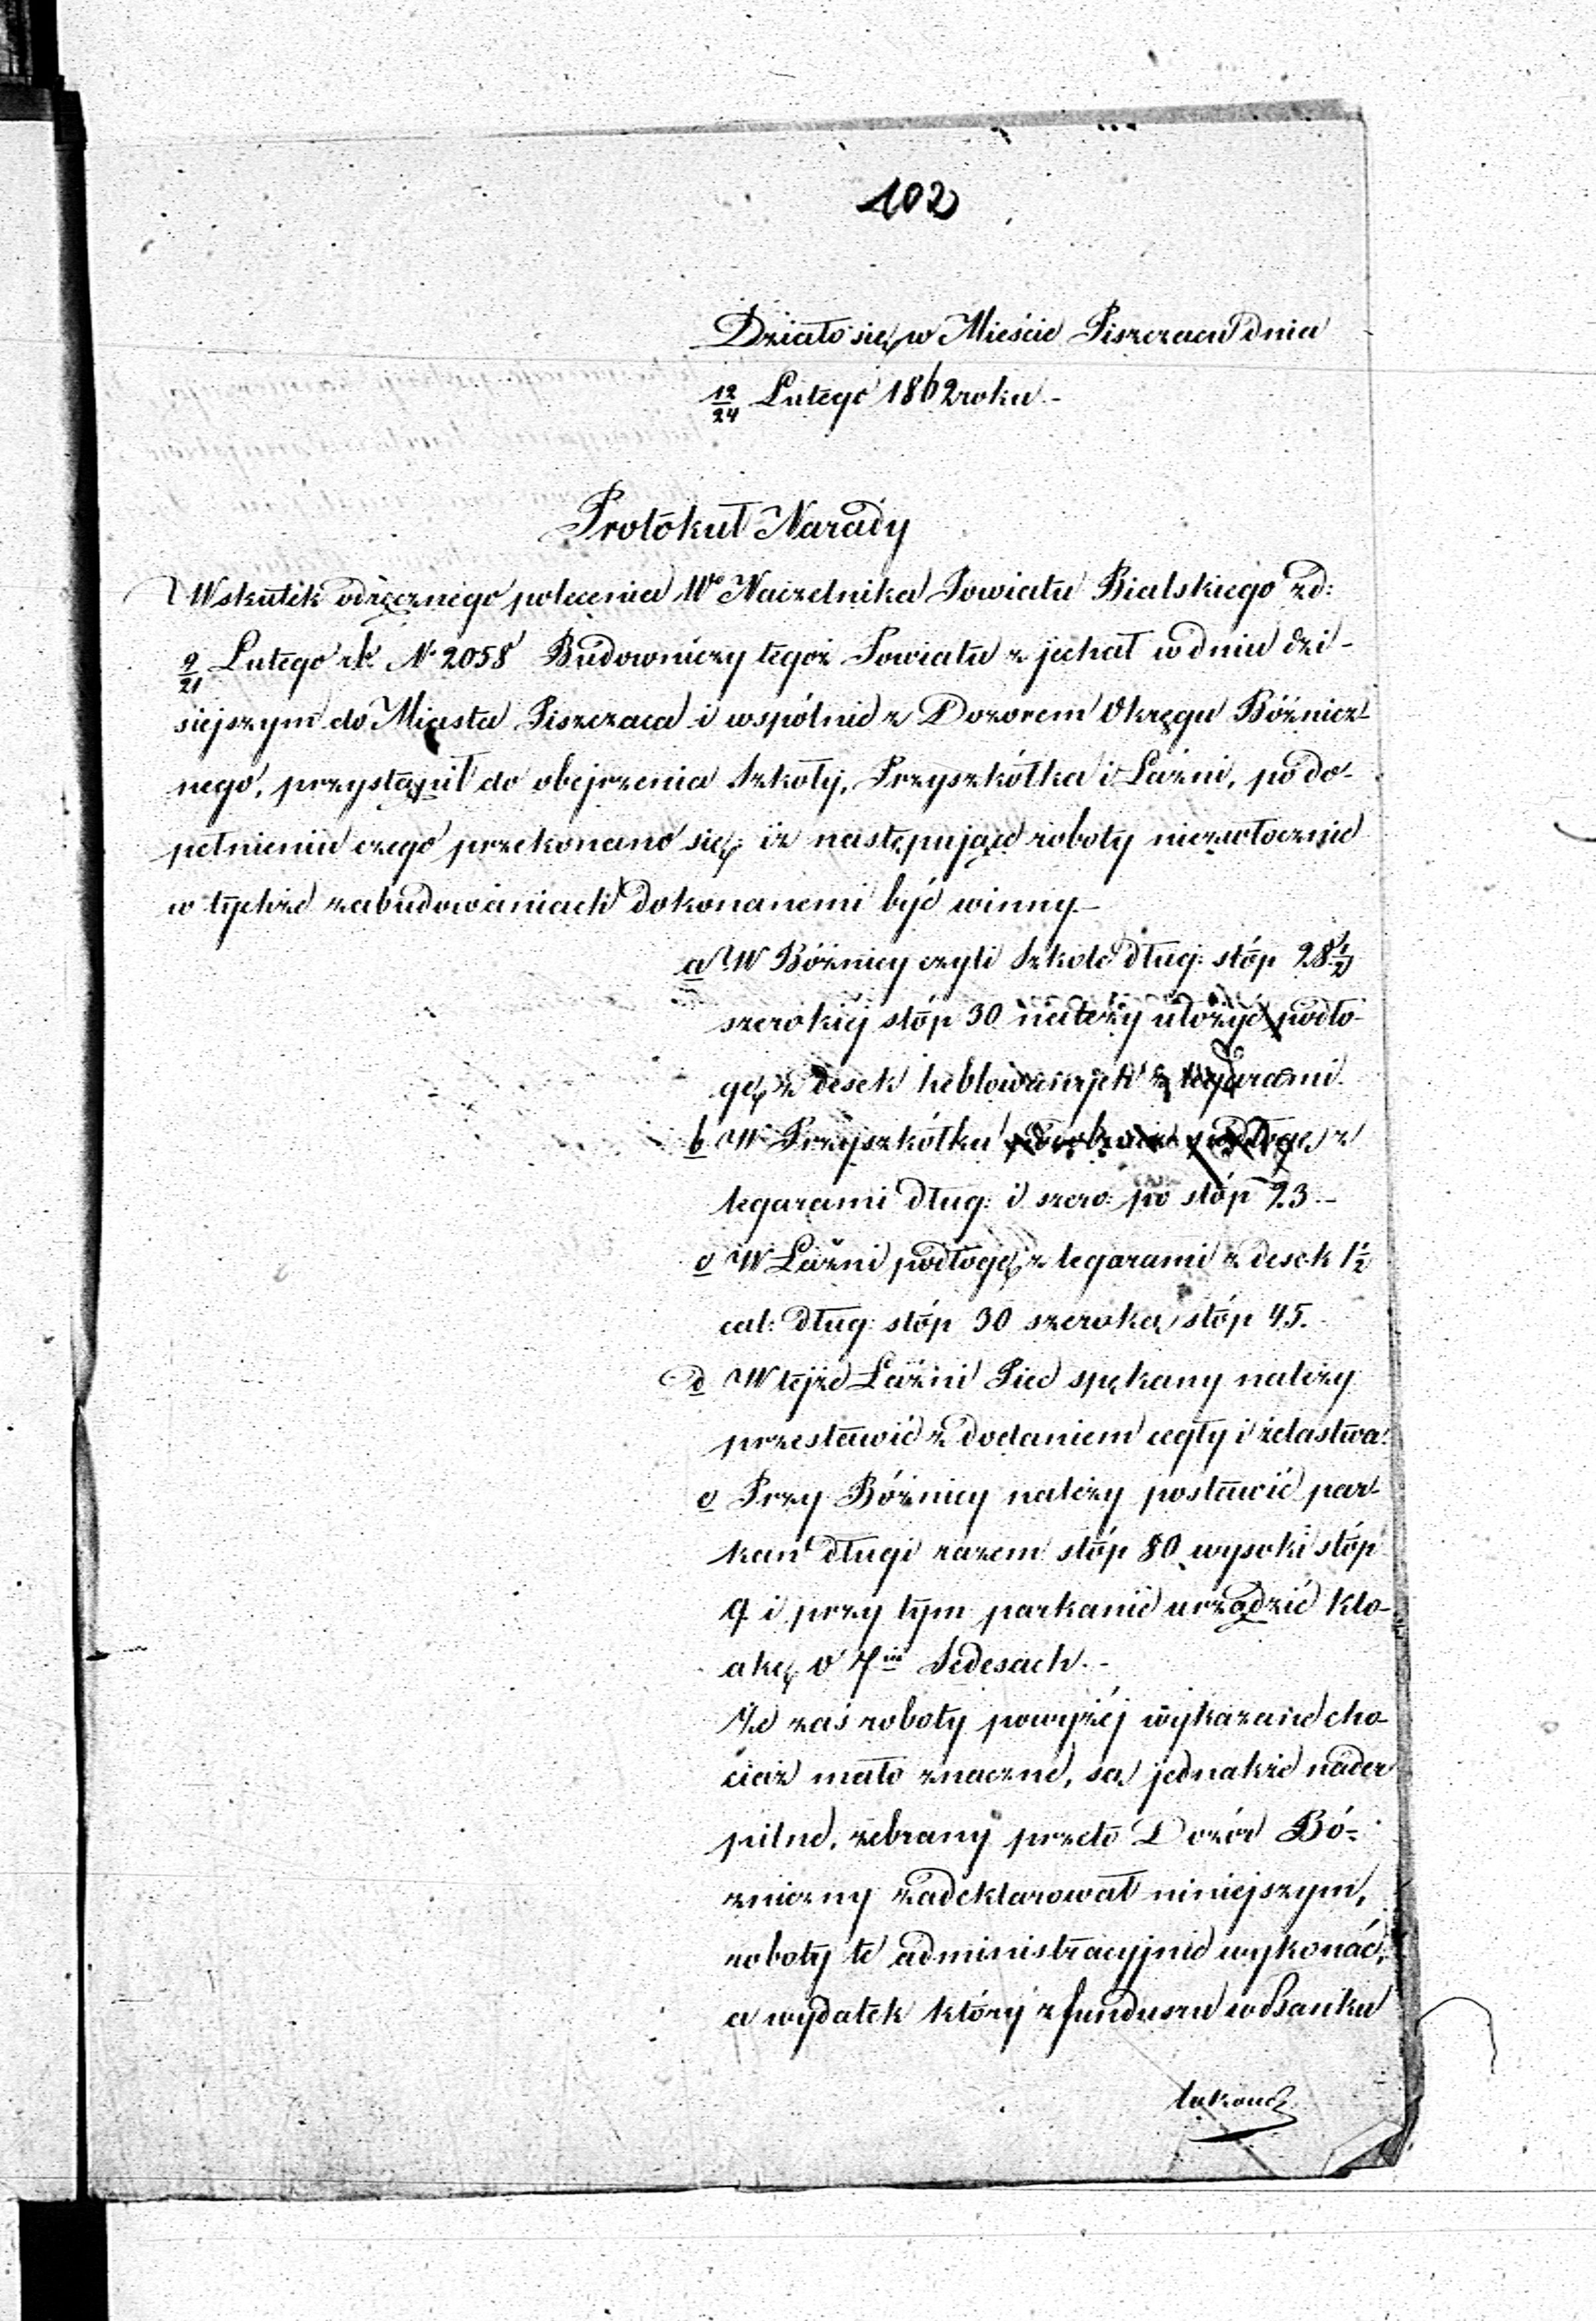 102
Działo się w Mieście Piszczacu dnia
12/24 Lutego 1862 roku.-
Protokuł Narady
Wskutek odręcznego polecenia Wo Naczelnika Powiatu Bialskiego z d:
9/21 Lutego rb. N 2058 Budowniczy tegoż Powiatu zjechał w dniu dzi-
siejszym do Miasta Piszczaca i wspólnie z Dozorem Okręgu Bóźnicz-
nego, przystąpił do obejrzenia Szkoły, Przyszkółka i Łaźni, po do-
pełnieniu czego przekonano się iż następujące roboty niezwłocznie
w tychże zabudowaniach dokonanemi być winny.-
a W Bóżnicy czyli Szkole dług: stóp 28 1/2
szerokiéj stóp 30 należy ułożyć podło-
gę z desek heblowanych z legarami.
b W Przyszkółku podłogę z
legarami dług: i szero: po stóp 23.-
c W Łaźni podłogę z legarami z desek 1 1/2
cal: dług: stóp 30 szeroką stóp 45.
d W tejże Łaźni Piec spękany należy
przestawić z dodaniem cegły i żelastwa.
e Przy Bóżnicy należy postawić par-
kan długi razem stóp 80 wysoki stóp
9 i przy tym parkanie urządzić klo-
akę o 7miu Sedesach.-
Że zaś roboty powyżéj wykazane cho-
ciaż mało znaczne, są jednakże nader
pilne, zebrany przeto Dozór Bó-
żniczny zadeklarował niniejszym,
roboty te administracyjnie wykonać,
a wydatek który z funduszu w Banku